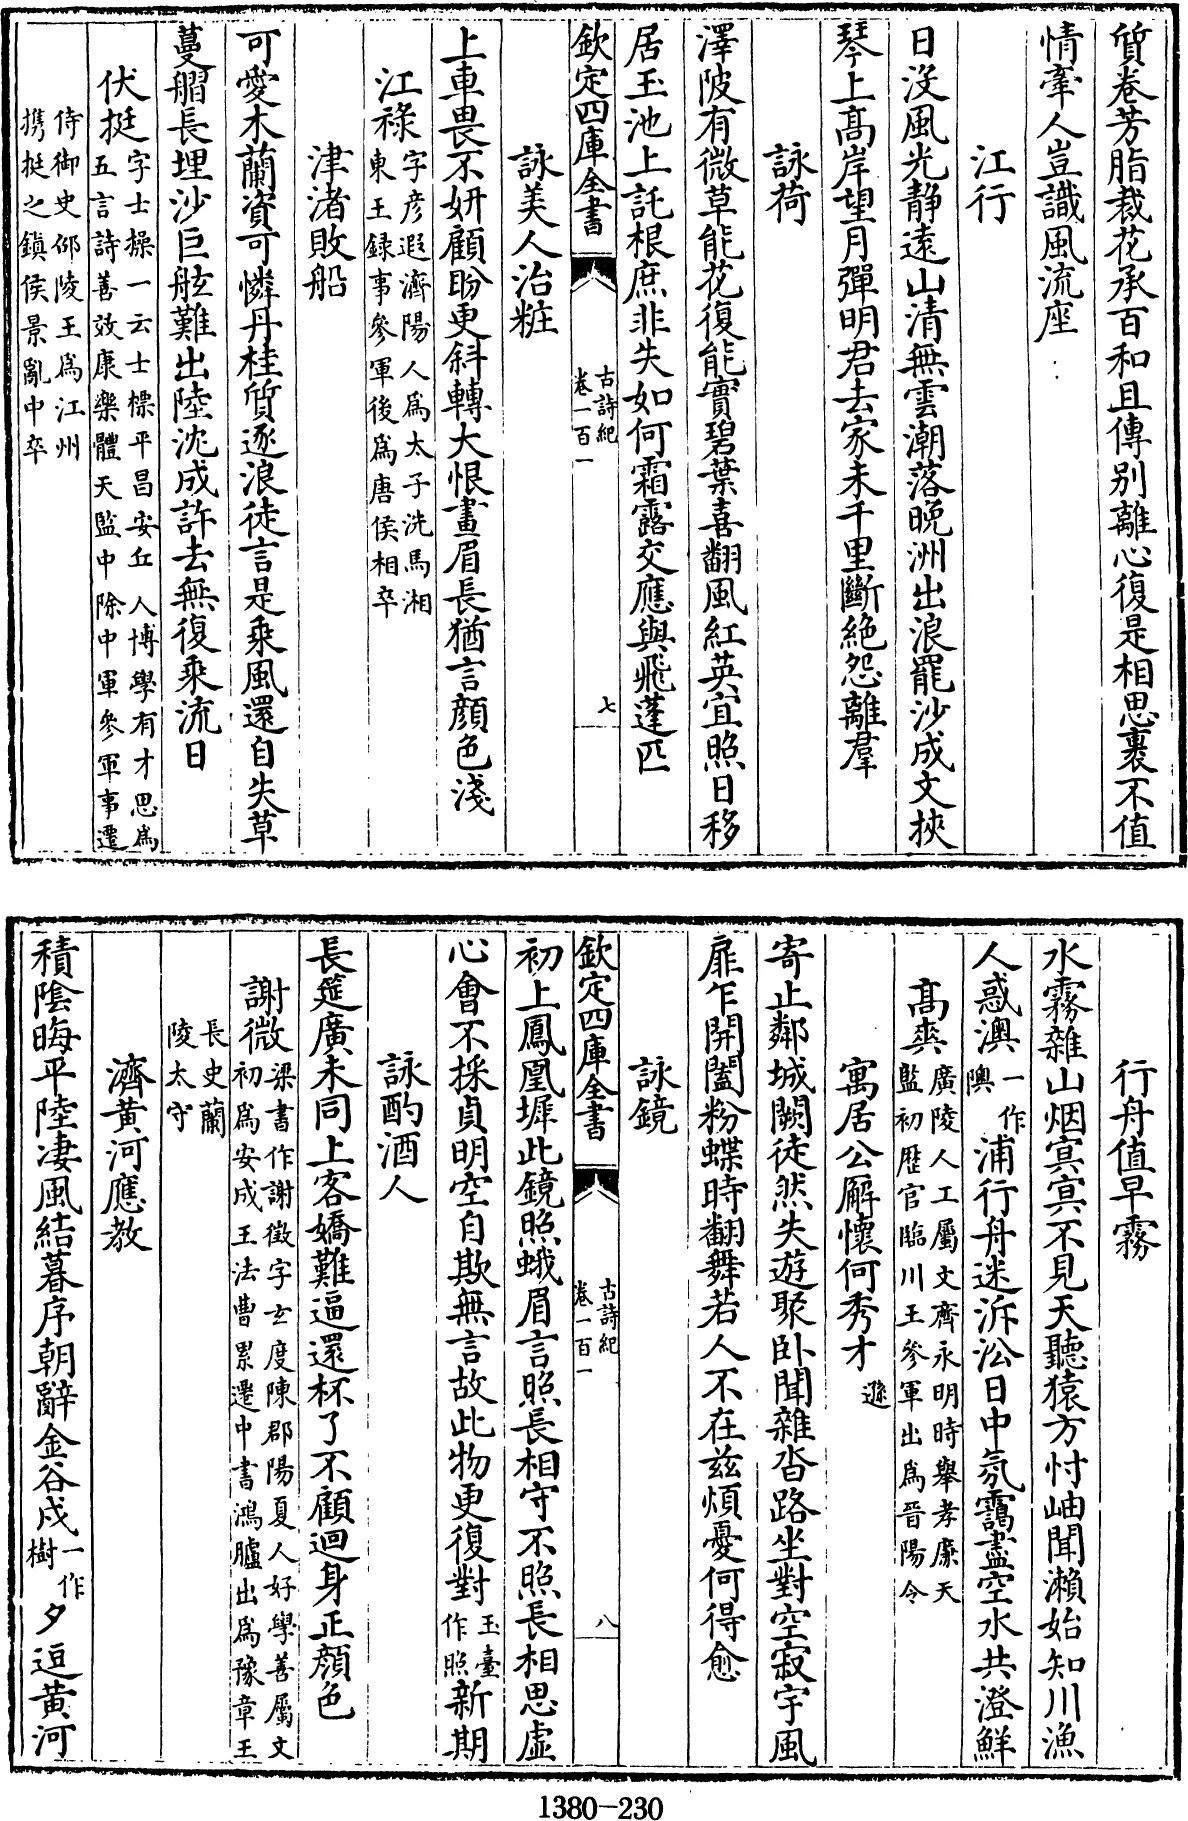 質卷芳脂裁花承百和且傳别離心復是相思裹不值
情牽人豈識風流座
江行
日沒風光静遠山清無雲潮落晚洲出浪罷沙成文挾
琴上高岸望月彈明君去家未千里斷絶怨離羣
詠荷
澤陂有微草能花復能實碧葉喜翻風紅英宜照日移
居玉池上託根庶非失如何霜露交應與飛蓬匹
欽定四庫全書
古詩紀
卷一百一
七
詠美人治粧
上車畏不妍顧盼更斜轉大恨畫眉長猶言顔色淺
江祿字彦遐濟陽人為太子洗馬湘
東王録事參軍後為唐侯相卒
津渚敗船
可愛木蘭資可憐丹桂質逐浪徒言是乘風還自失草
蔓艒長埋沙巨舷難出陸沈成許去無復乘流日
伏挺字士操一云士標平昌安丘人博學有才思為
五言詩善效康樂體天監中除中軍參軍事遷
侍御史邵陵王為江州
携挺之鎮侯景亂中卒
行舟值早霧
水霧雜山烟㝠㝠不見天聽猿方忖岫聞瀨始知川漁
人惑澳一作
隩浦行舟迷泝㳂日中氛靄盡空水共澄鮮
高爽廣陵人工屬文齊永明時舉孝廉天
監初歷官臨川王參軍出為晉陽令
寓居公廨懷何秀才遜
寄止鄰城闕徒然失遊聚卧聞雜沓路坐對空寂宇風
扉乍開闔粉蝶時翻舞若人不在兹煩憂何得愈
詠鏡
欽定四庫全書
古詩紀
卷一百一
八
初上鳳凰墀此鏡照蛾眉言照長相守不照長相思虛
心會不採貞明空自欺無言故此物更復對玉臺
作照新期
詠酌酒人
長筵廣未同上客嬌難逼還杯了不顧迴身正顔色
謝微梁書作謝徵字玄度陳郡陽夏人好學善屬文
初為安成王法曹累遷中書鴻臚出為豫章王
長史蘭
陵太守
濟黃河應教
積陰晦平陸淒風結暮序朝辭金谷戍一作
樹夕逗黃河
1380-230